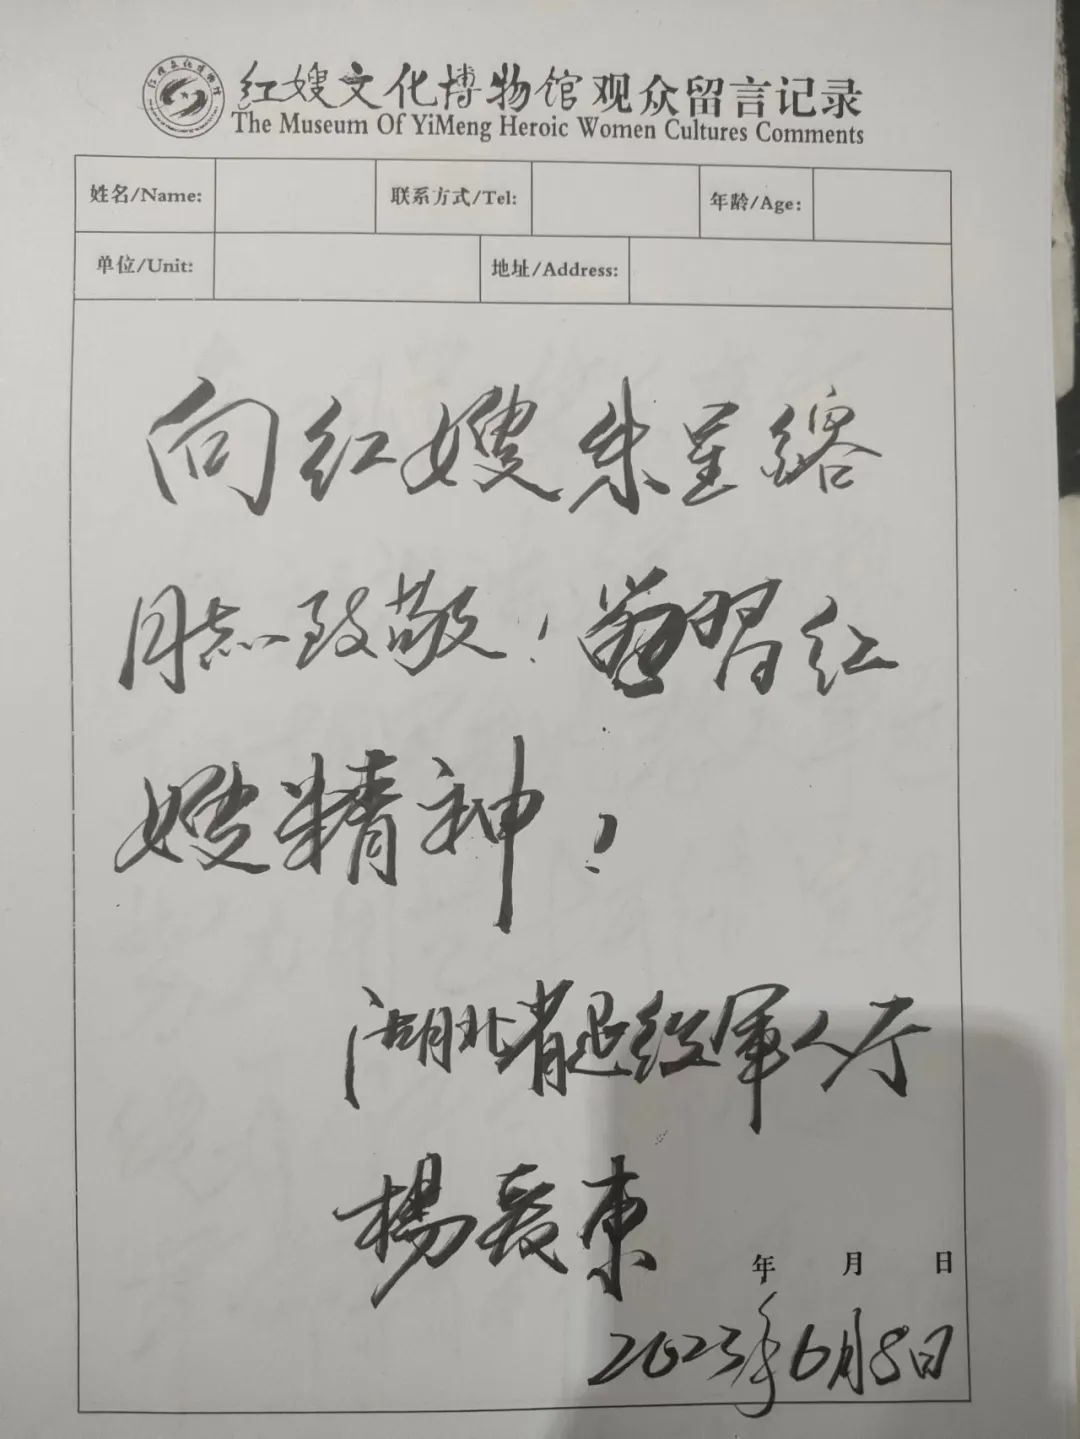 红嫂文化博物馆观众留言记录
The Museum Of YiMeng Heroic Women Cultures Comments
姓名/Name: 联系方式/Tel: 年龄/Age:
单位/Unit: 地址/Address:
向红嫂朱呈镕
同志致敬！学習红
嫂精神！
湖北省退役軍人厅
楊爱東
年 月 日
2023年6月8日